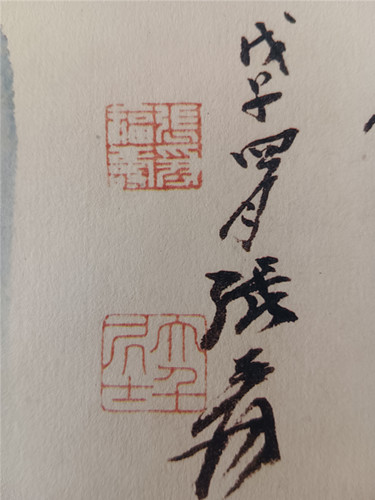 戊午四月張爰
張爰
福壽
大千
居士